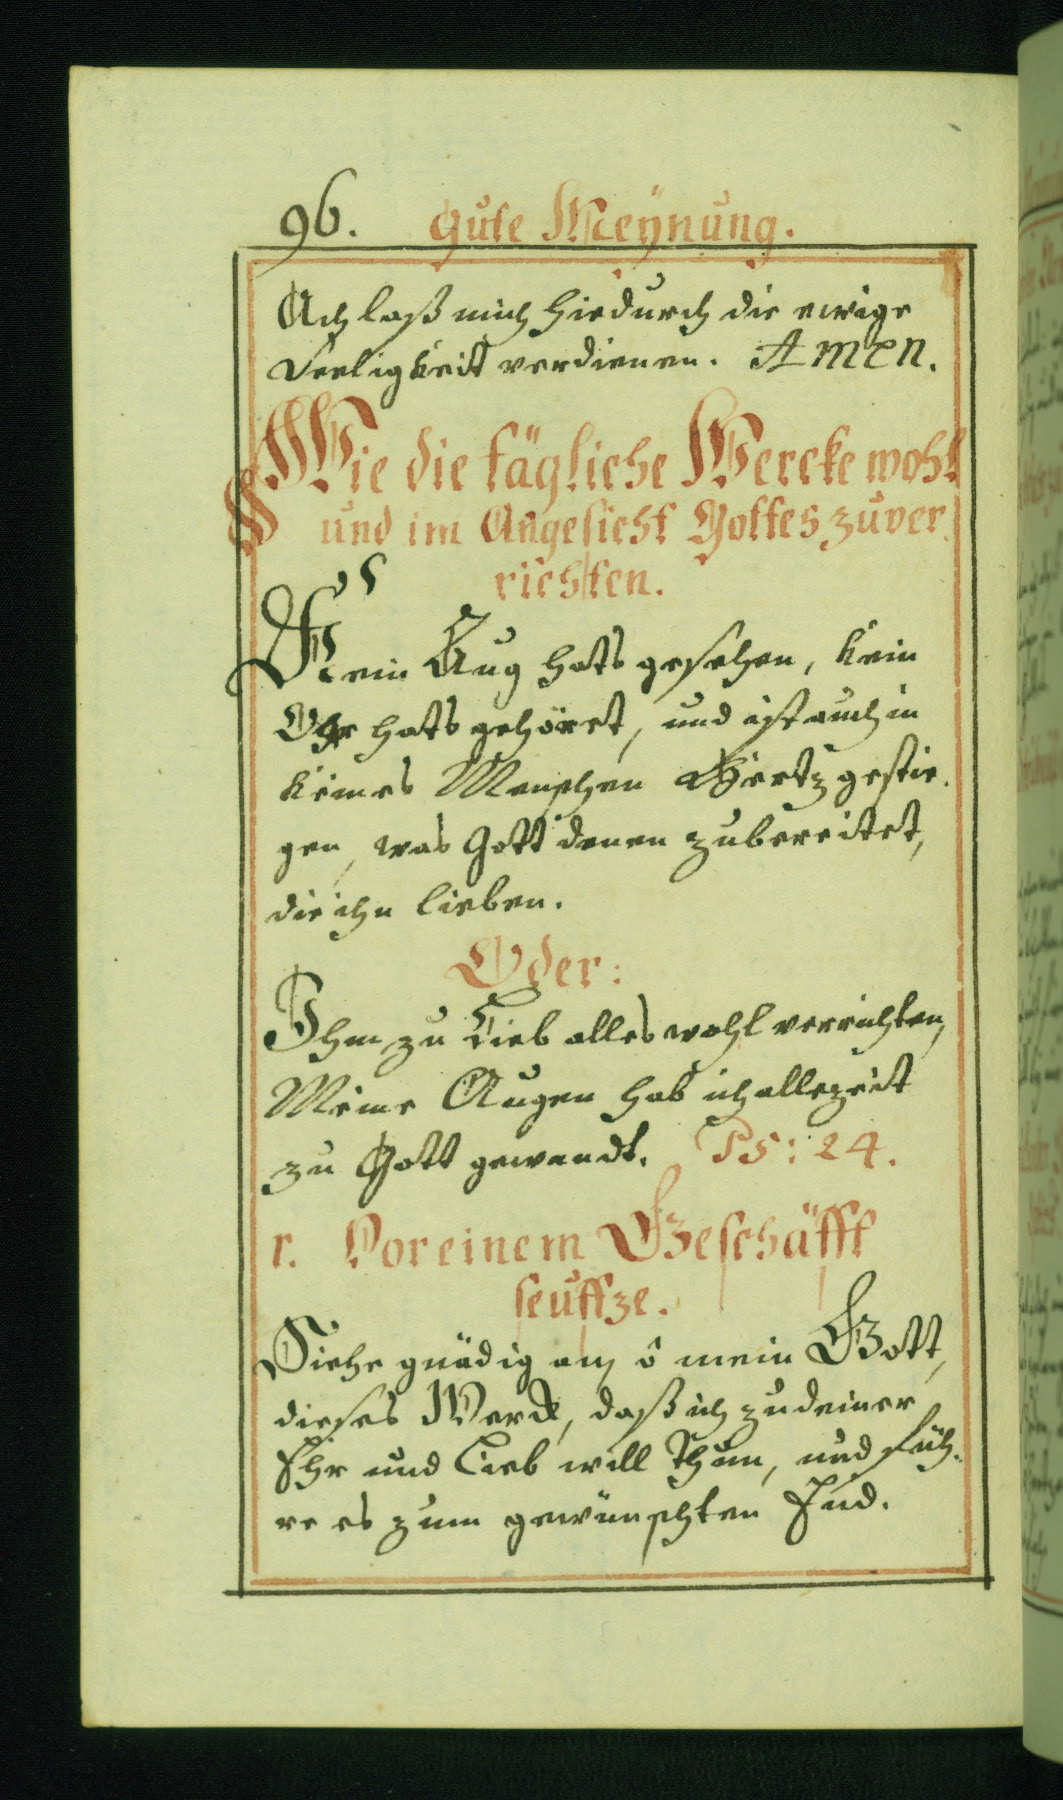 96. Gute Meÿnung.
Ach laß mich hiedurch die ewige
Seeligkeit verdienen. Amen.
Wie die tägliche Wercke wohl
und im Angesicht Gottes zu ver
richten.
Kein Aug hats gesehen, kein
Ohr hats gehöret, und ist auch in
keines Menschen Hertz gestie-
gen, was Gott denen zubereitet,
die ihn lieben.
Oder:
Ihm zu Lieb alles wohl verrichten,
Meine Augen hab ich allezeit
zu Gott gewandt. Ps: 24.
r. Vor einem Geschäfft
seuffze.
Siehe gnädig an, ô mein Gott,
dieses Werck, daß ich zu deiner
Ehr und Lieb will thun, und füh-
re es zum gewünschten End.